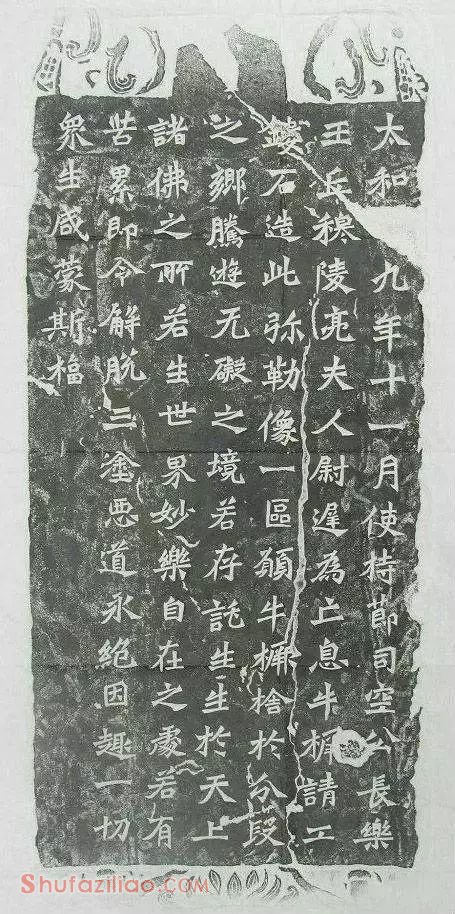 太和 九年十一月使持節司空公長樂
王丘穆陵亮夫人尉遲為亡息牛橛請工
鏤石造此弥勒像一區願牛橛捨於分段
之鄉騰遊无礙之境若存託生生於天上
諸佛之所若生世界妙樂自在之處若有
苦累即令解脱三塗恶道永絶因趣一切
衆生咸蒙斯福
Shufaziliao.com